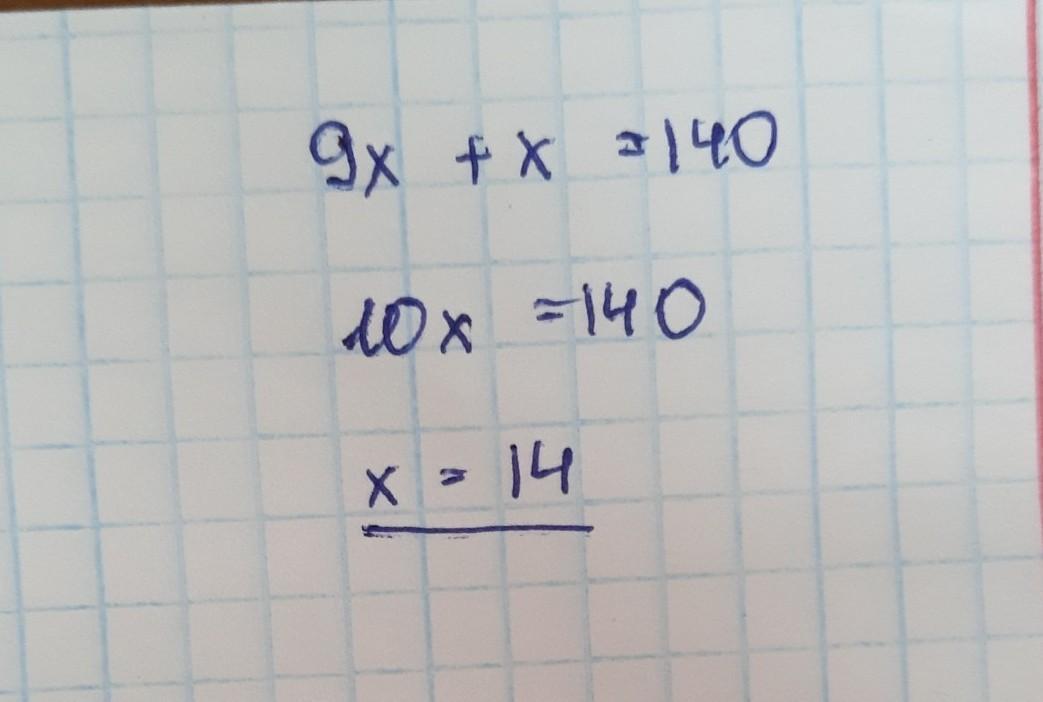 9x + x = 140
10x = 140
x = 14